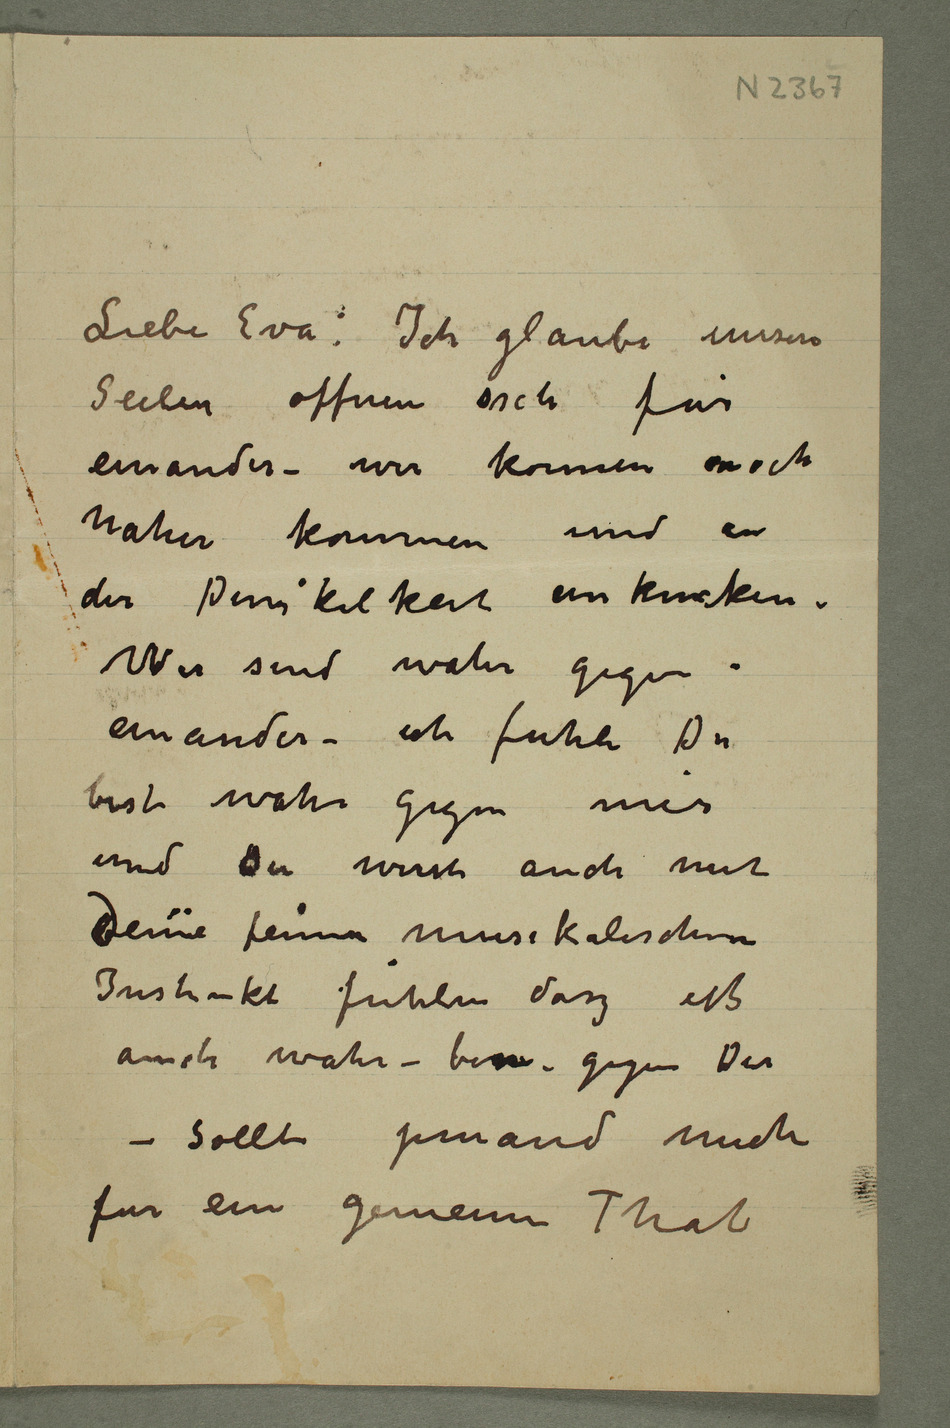 N 2367
Liebe Eva! Ich glaube unsere
Seelen offnen sich für
einander – wir konnen noch
naher kommen und in
der Dunkelkeit
Wir sind wahr gegen
einander – ich fuhle Du
bist wahr gegen mir
und Du wirst auch mit
Deine feinen musikalischen
Instinkt fuhlen dasz ich
auch wahr – bin – gegen Dir
– Sollte jemand mich
fur ein gemeine That